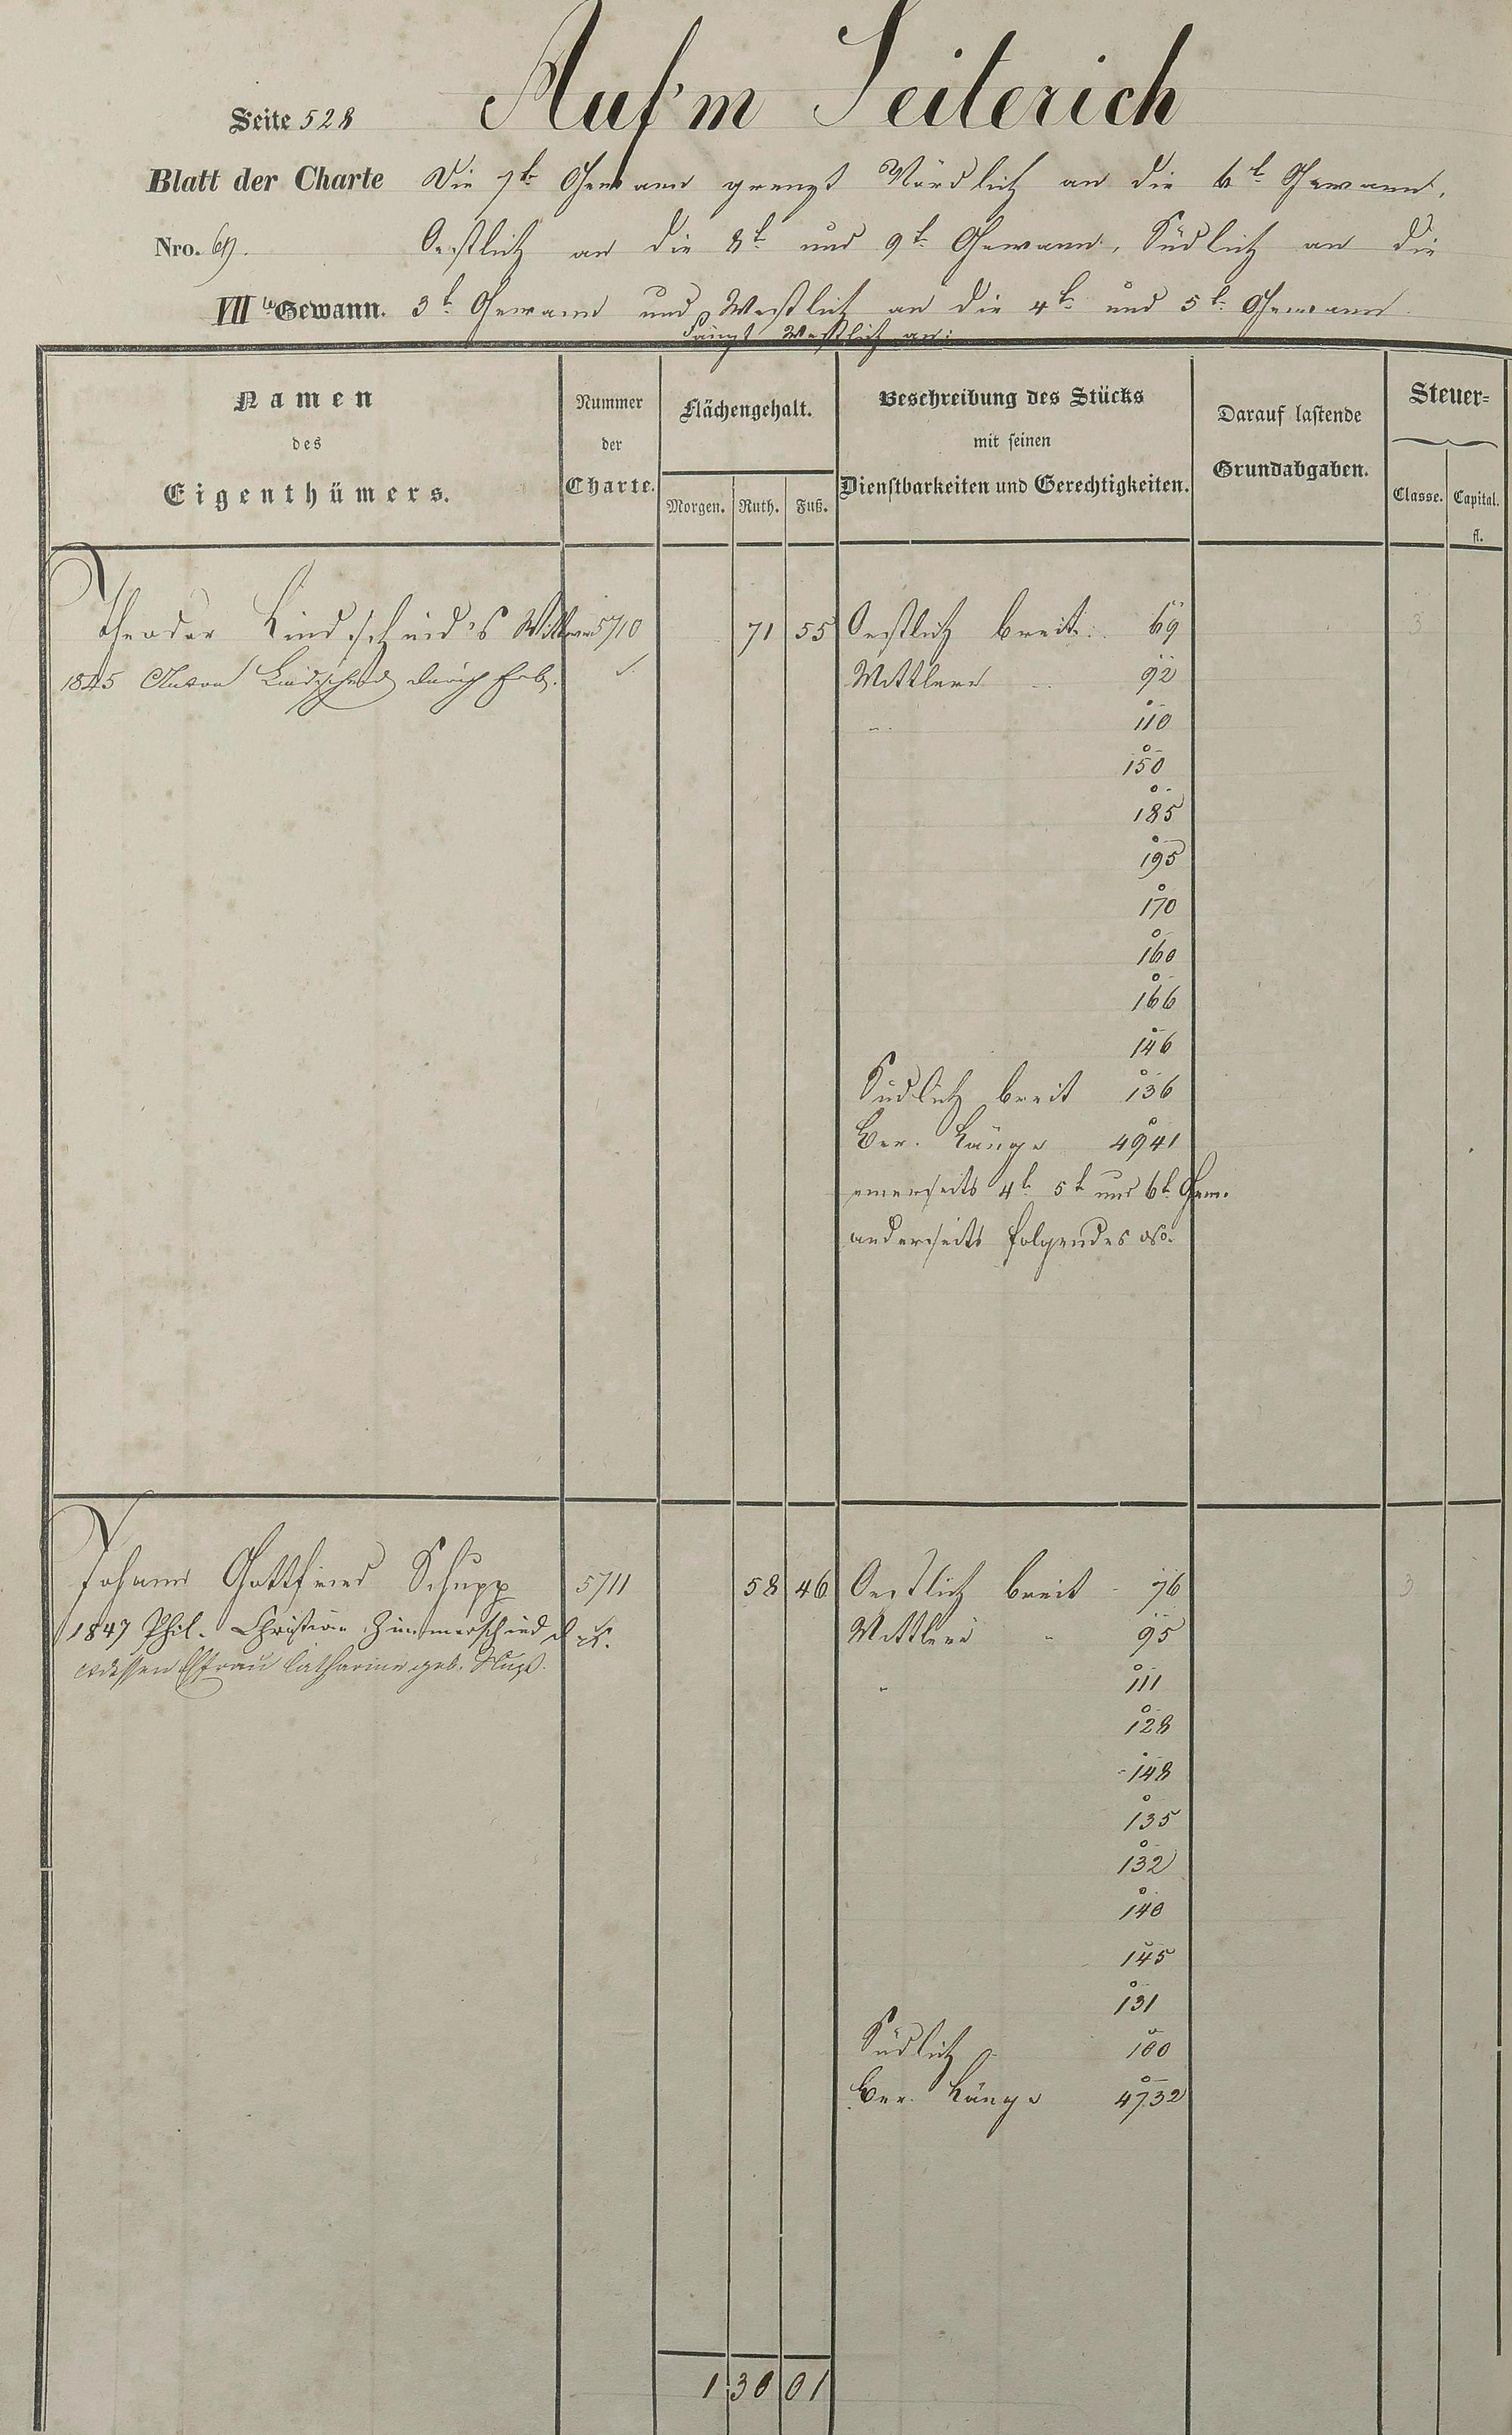 Auf'm Seiterich
Seite 528
Blatt der Charte Die 7te Gewann grenzt Nördlich an die 6te Gewann,
Nro. 69. Oestlich an die 8te und 9te Gewann, Südlich an die
VII te Gewann. 3te Gewann und Westlich an die 4te und 5te Gewann.
Fängt Westlich an:
Namen
des
Eigenthümers.
Nummer
der
Charte.
Flächengehalt.
Morgen. Ruth. Fuß.
Beschreibung des Stücks
mit seinen
Dienstbarkeiten und Gerechtigkeiten.
Darauf lastende
Grundabgaben.
Steuer=
Classe. Capital.
fl.
Theodor Lindscheid's Wittwe 5710 71 55 Oestlich breit 69 3
1845 Anton Lindscheid durch Erb. Mittlere 92
" 110
150
185
195
170
160
166
146
Südlich breit 136
Ber. Länge 4941
einerseits 4te 5te und 6te Gew.
anderseits folgendes No.
Johann Gottfried Schupp 5711 58 46 Oestlich breit 76 3
1847 Phil. Christian Zimmerschied Mittlere " 95
dessen Ehfrau Catharine geb.
" 111
128
148
135
132
140
145
131
Südlich 100
Ber. Länge 4732
1 30 01